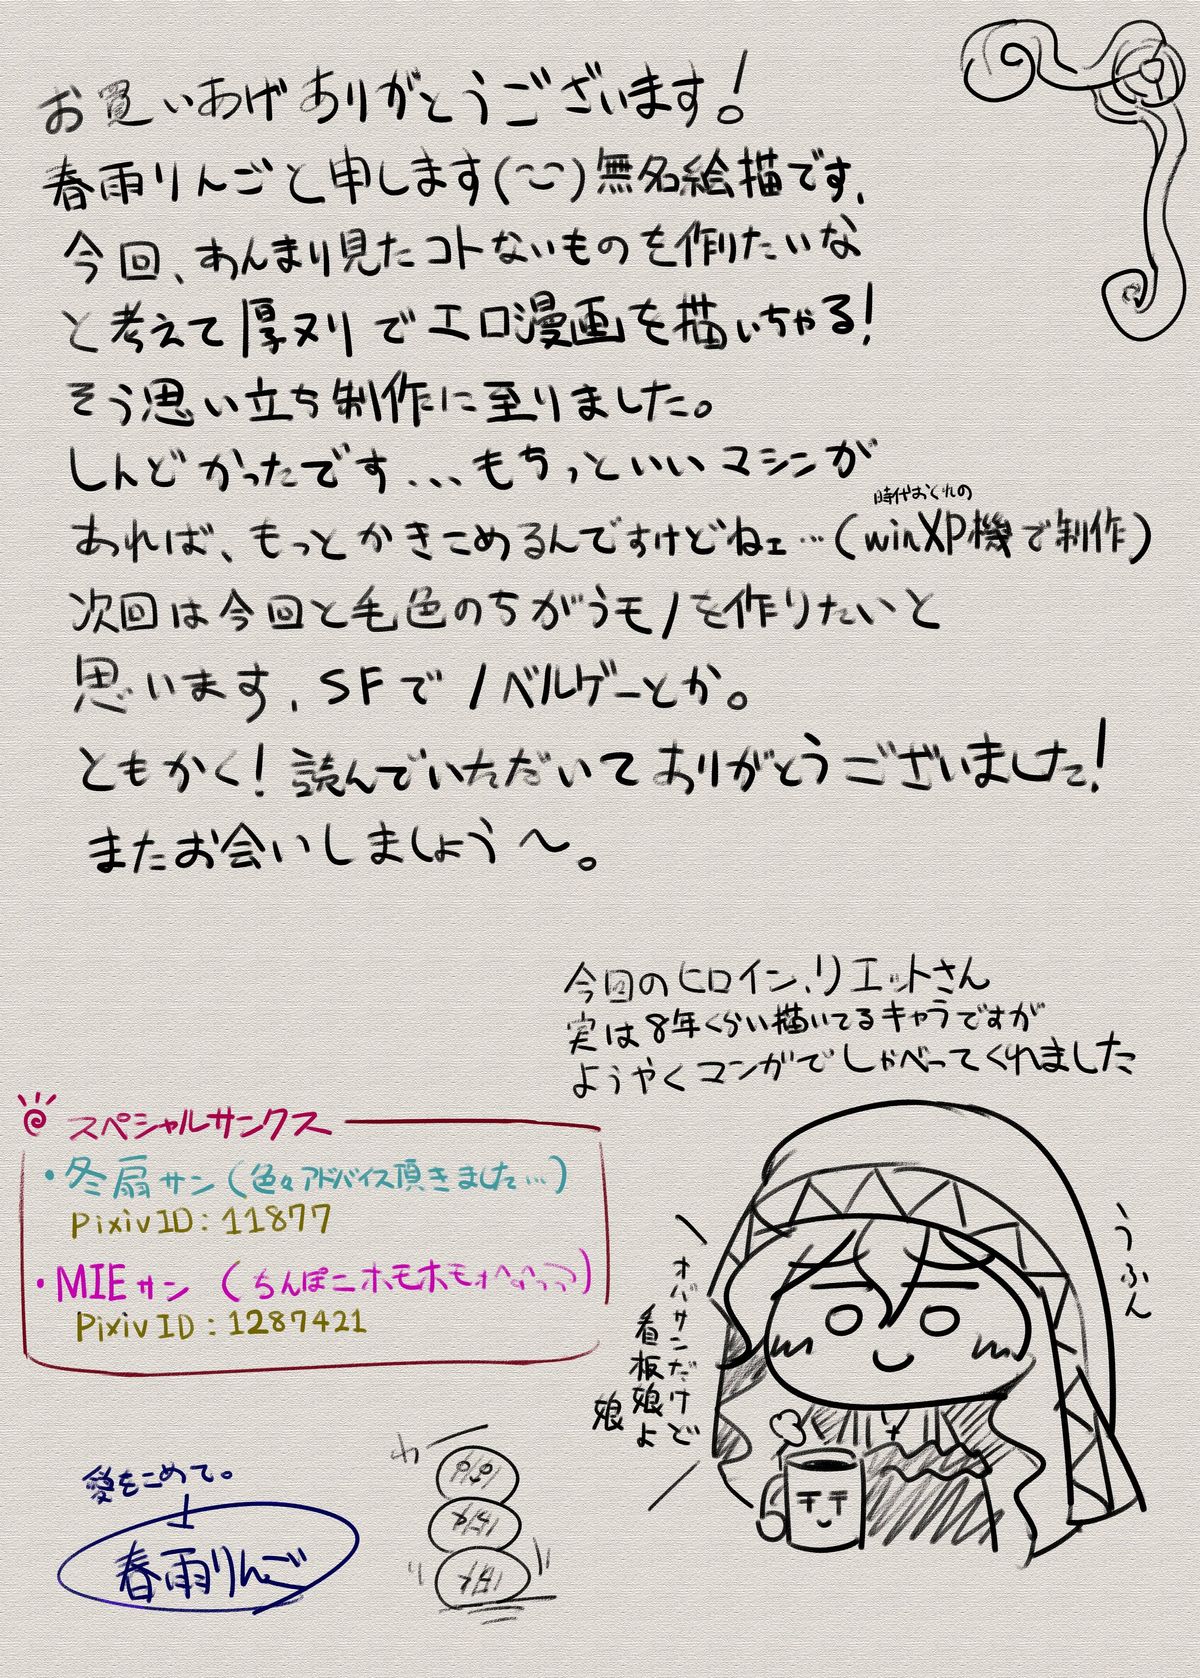 お買いあげありがとうございます!
春雨りんごと申します(^ー^)無名絵描です、
今回、あんまり見たコトないものを作りたいな
と考えて厚ヌリでエロ漫画を描いちゃる!
そう思い立ち制作に至りました。
しんどかったです...もちっといいマシンが
時代おくれの
あれば、もっとかきこめるんですけどねェ…(winXP機で制作)
次回は今回と毛色のちがうモノを作りたいと
思います、SFでノベルゲーとか。
ともかく!読んでいただいてありがとうございました!
またお会いしましょう〜。
今回のヒロイン、リエットさん
実は8年くらい描いてるキャラですが
ようやくマンガでしゃべってくれました
スペシャルサンクス
・冬扇サン(色々アドバイス頂きました…)
PixivID:11877
・MIEサン(ちんぽこホモホモ
PixivID:1287421
うふん
オバサンだけど
看板娘よ
娘
愛をこめて。
春雨りんご